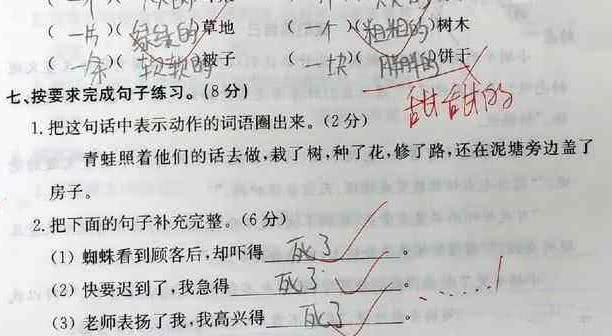 ( 一片 )( 绿绿的 )草地 ( 一个 )( 粗粗的 )树木
( 一条 )( 软软的 )被子 ( 一块 )( 胖胖的 )饼干
甜甜的
七、按要求完成句子练习。(8分)
1.把这句话中表示动作的词语圈出来。(2分)
青蛙照着他们的话去做,栽了树,种了花,修了路,还在泥塘旁边盖了
房子。
2.把下面的句子补充完整。(6分)
(1) 蜘蛛看到顾客后,却吓得 死了 。
(2) 快要迟到了,我急得 死了 。
(3) 老师表扬了我,我高兴得 死了 。 ......!